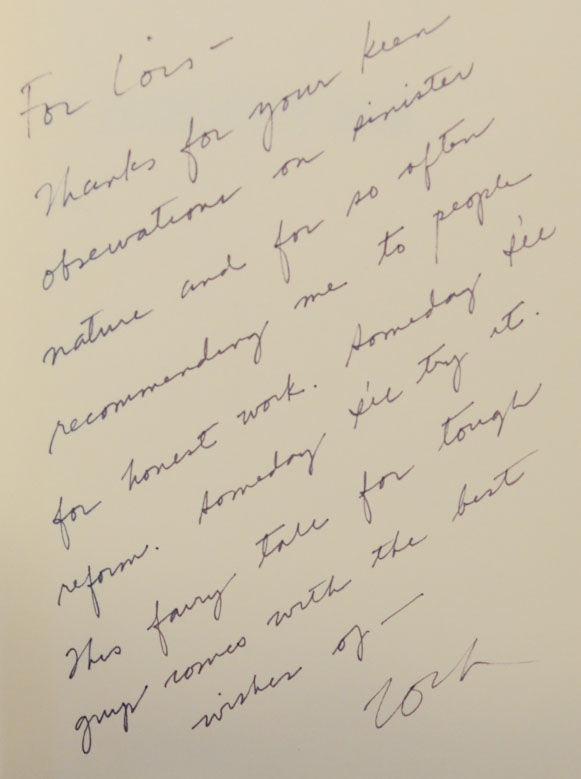 For Lois –
Thanks for your keen
observations on sinister
nature and for so often
recommending me to people
for honest work. Someday I'll
reform. Someday I'll try it.
This fairy tale for tough
guys comes with the best
wishes of —